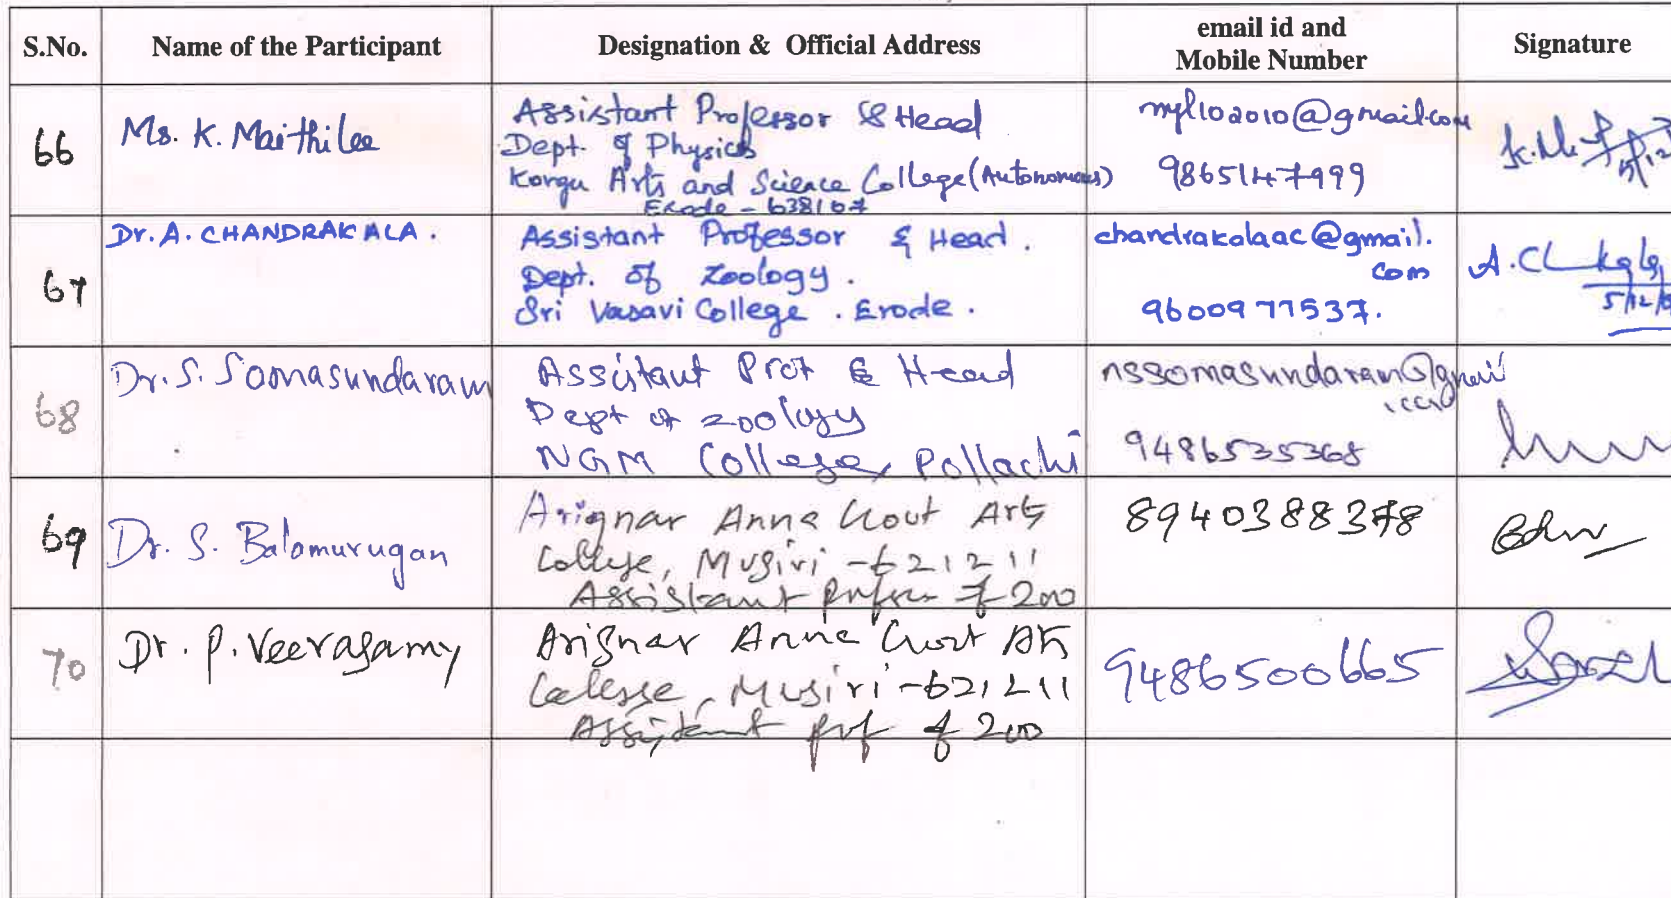 S.No. Name of the Participant Designation & Official Address email id and Mobile Number Signature
66 Ms. K. Maithilee
Assistant Professor & Head
Dept. of Physics
Kongu Arts and Science College (Autonomous)
Erode - 638107
@gmail.com
9865147999
67 Dr. A. CHANDRAKALA.
Assistant Professor & Head.
Dept. of Zoology.
Sri Vasavi College. Erode.
chandrakalaac@gmail.
com
9600977537.
A.Ch
5/12/
68 Dr. S. Somasundaram
Assistant Prof & Head
Dept of Zoology
NGM College, Pollachi
nssomasundaram@gmail
.com
9486535368
69 Dr. S. Balamurugan
Arignar Anna Govt Arts
College, Musiri - 621211
Assistant Professor of Zoo
8940388378
70 Dr. P. Veerasamy
Arignar Anna Govt Arts
College, Musiri - 621211
Assistant Prof of Zoo
9486500665